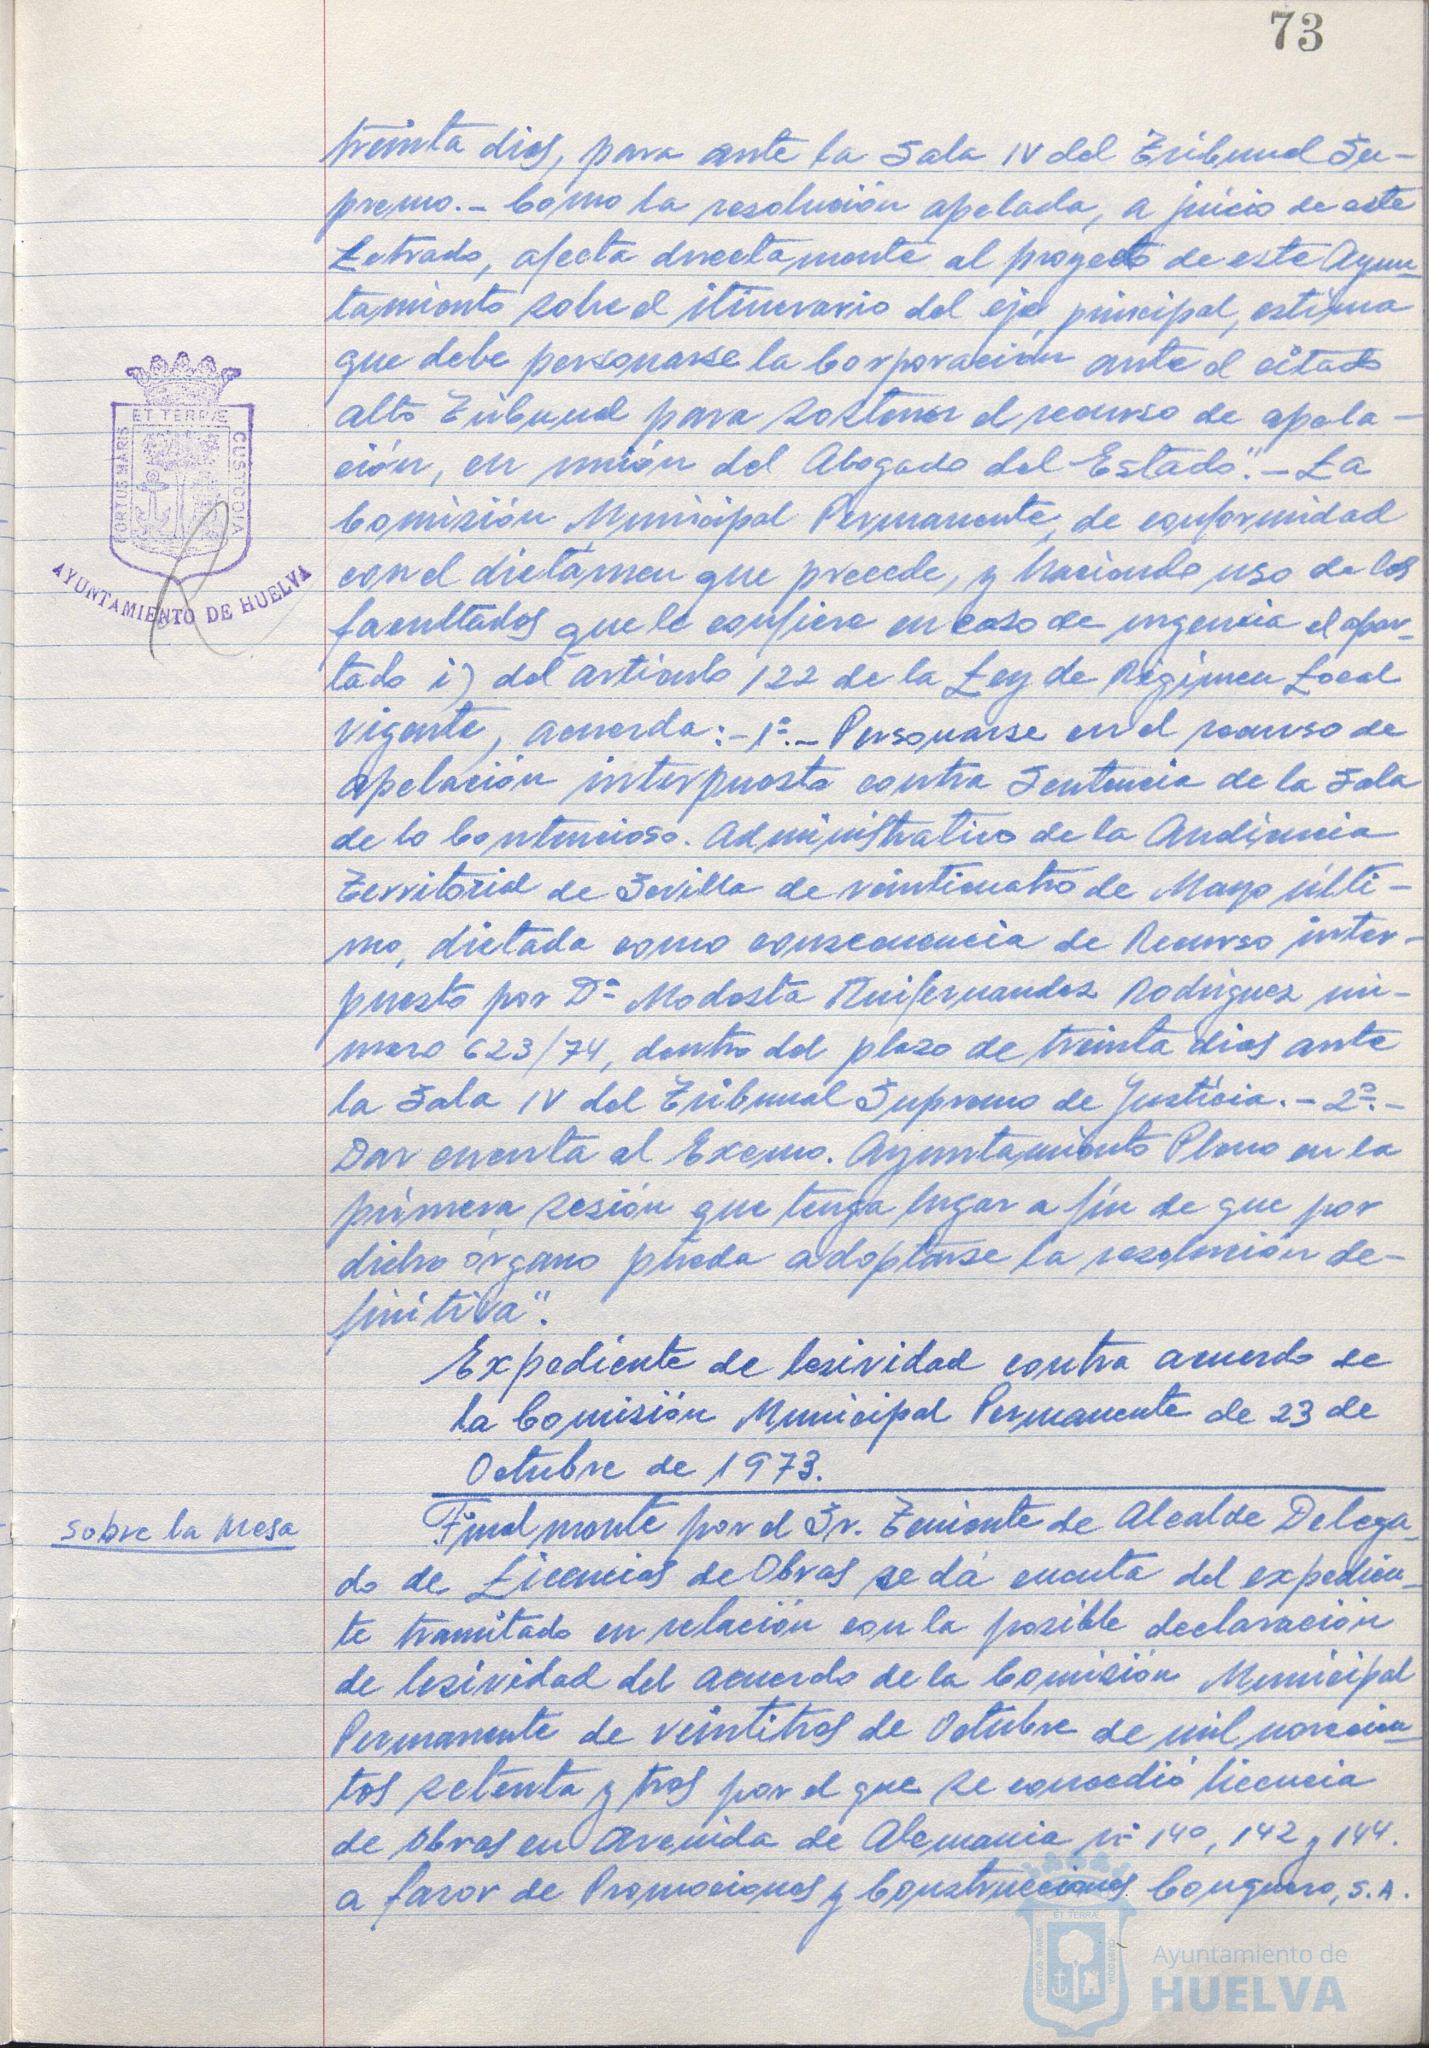 73
treinta dias, para ante la Sala IV del Tribunal Su-
premo.- Como la resolución apelada, a juicio de este
Letrado, afecta directamente al proyecto de este Ayun-
tamiento sobre el itinerario del eje principal, estima
que debe personarse la Corporación ante el citado
alto Tribunal para sostener el recurso de apela-
ción, en unión del Abogado del Estado".- La
Comisión Municipal Permanente, de conformidad
con el dictámen que precede, y haciendo uso de las
facultades que le confiere en caso de urgencia el apar-
tado i) del artículo 122 de la Ley de Régimen Local
vigente, acuerda:-1º.- Personarse en el recurso de
apelación interpuesto contra Sentencia de la Sala
de lo Contencioso. Administrativo de la Audiencia
Territorial de Sevilla de veinticuatro de Mayo últi-
mo, dictada como consecuencia de Recurso inter-
puesto por Dª Modesta Ruifernandez Rodriguez nú-
mero 623/74, dentro del plazo de treinta dias ante
la Sala IV del Tribunal Supremo de Justicia.- 2º.-
Dar cuenta al Excmo. Ayuntamiento Pleno en la
primera sesión que tenga lugar a fin de que por
dicho órgano pueda adoptarse la resolución de-
finitiva".
Expediente de lesividad contra acuerdo de
la Comisión Municipal Permanente de 23 de
Octubre de 1973.
Sobre la Mesa
Finalmente por el Sr. Teniente de Alcalde Delega-
do de Licencias de Obras se dá cuenta del expedien-
te tramitado en relación con la posible declaración
de lesividad del acuerdo de la Comisión Municipal
Permanente de veintitres de Octubre de mil novecien-
tos setenta y tres por el que se concedió licencia
de Obras en Avenida de Alemania nº 140, 142 y 144.
a favor de Promociones y Construcciones Conquero, S.A.
PORTUS MARIS
ET TERRÆ
CUSTODIA
AYUNTAMIENTO DE HUELVA
PORTUS MARIS
ET TERRÆ
CUSTODIA
Ayuntamiento de
HUELVA